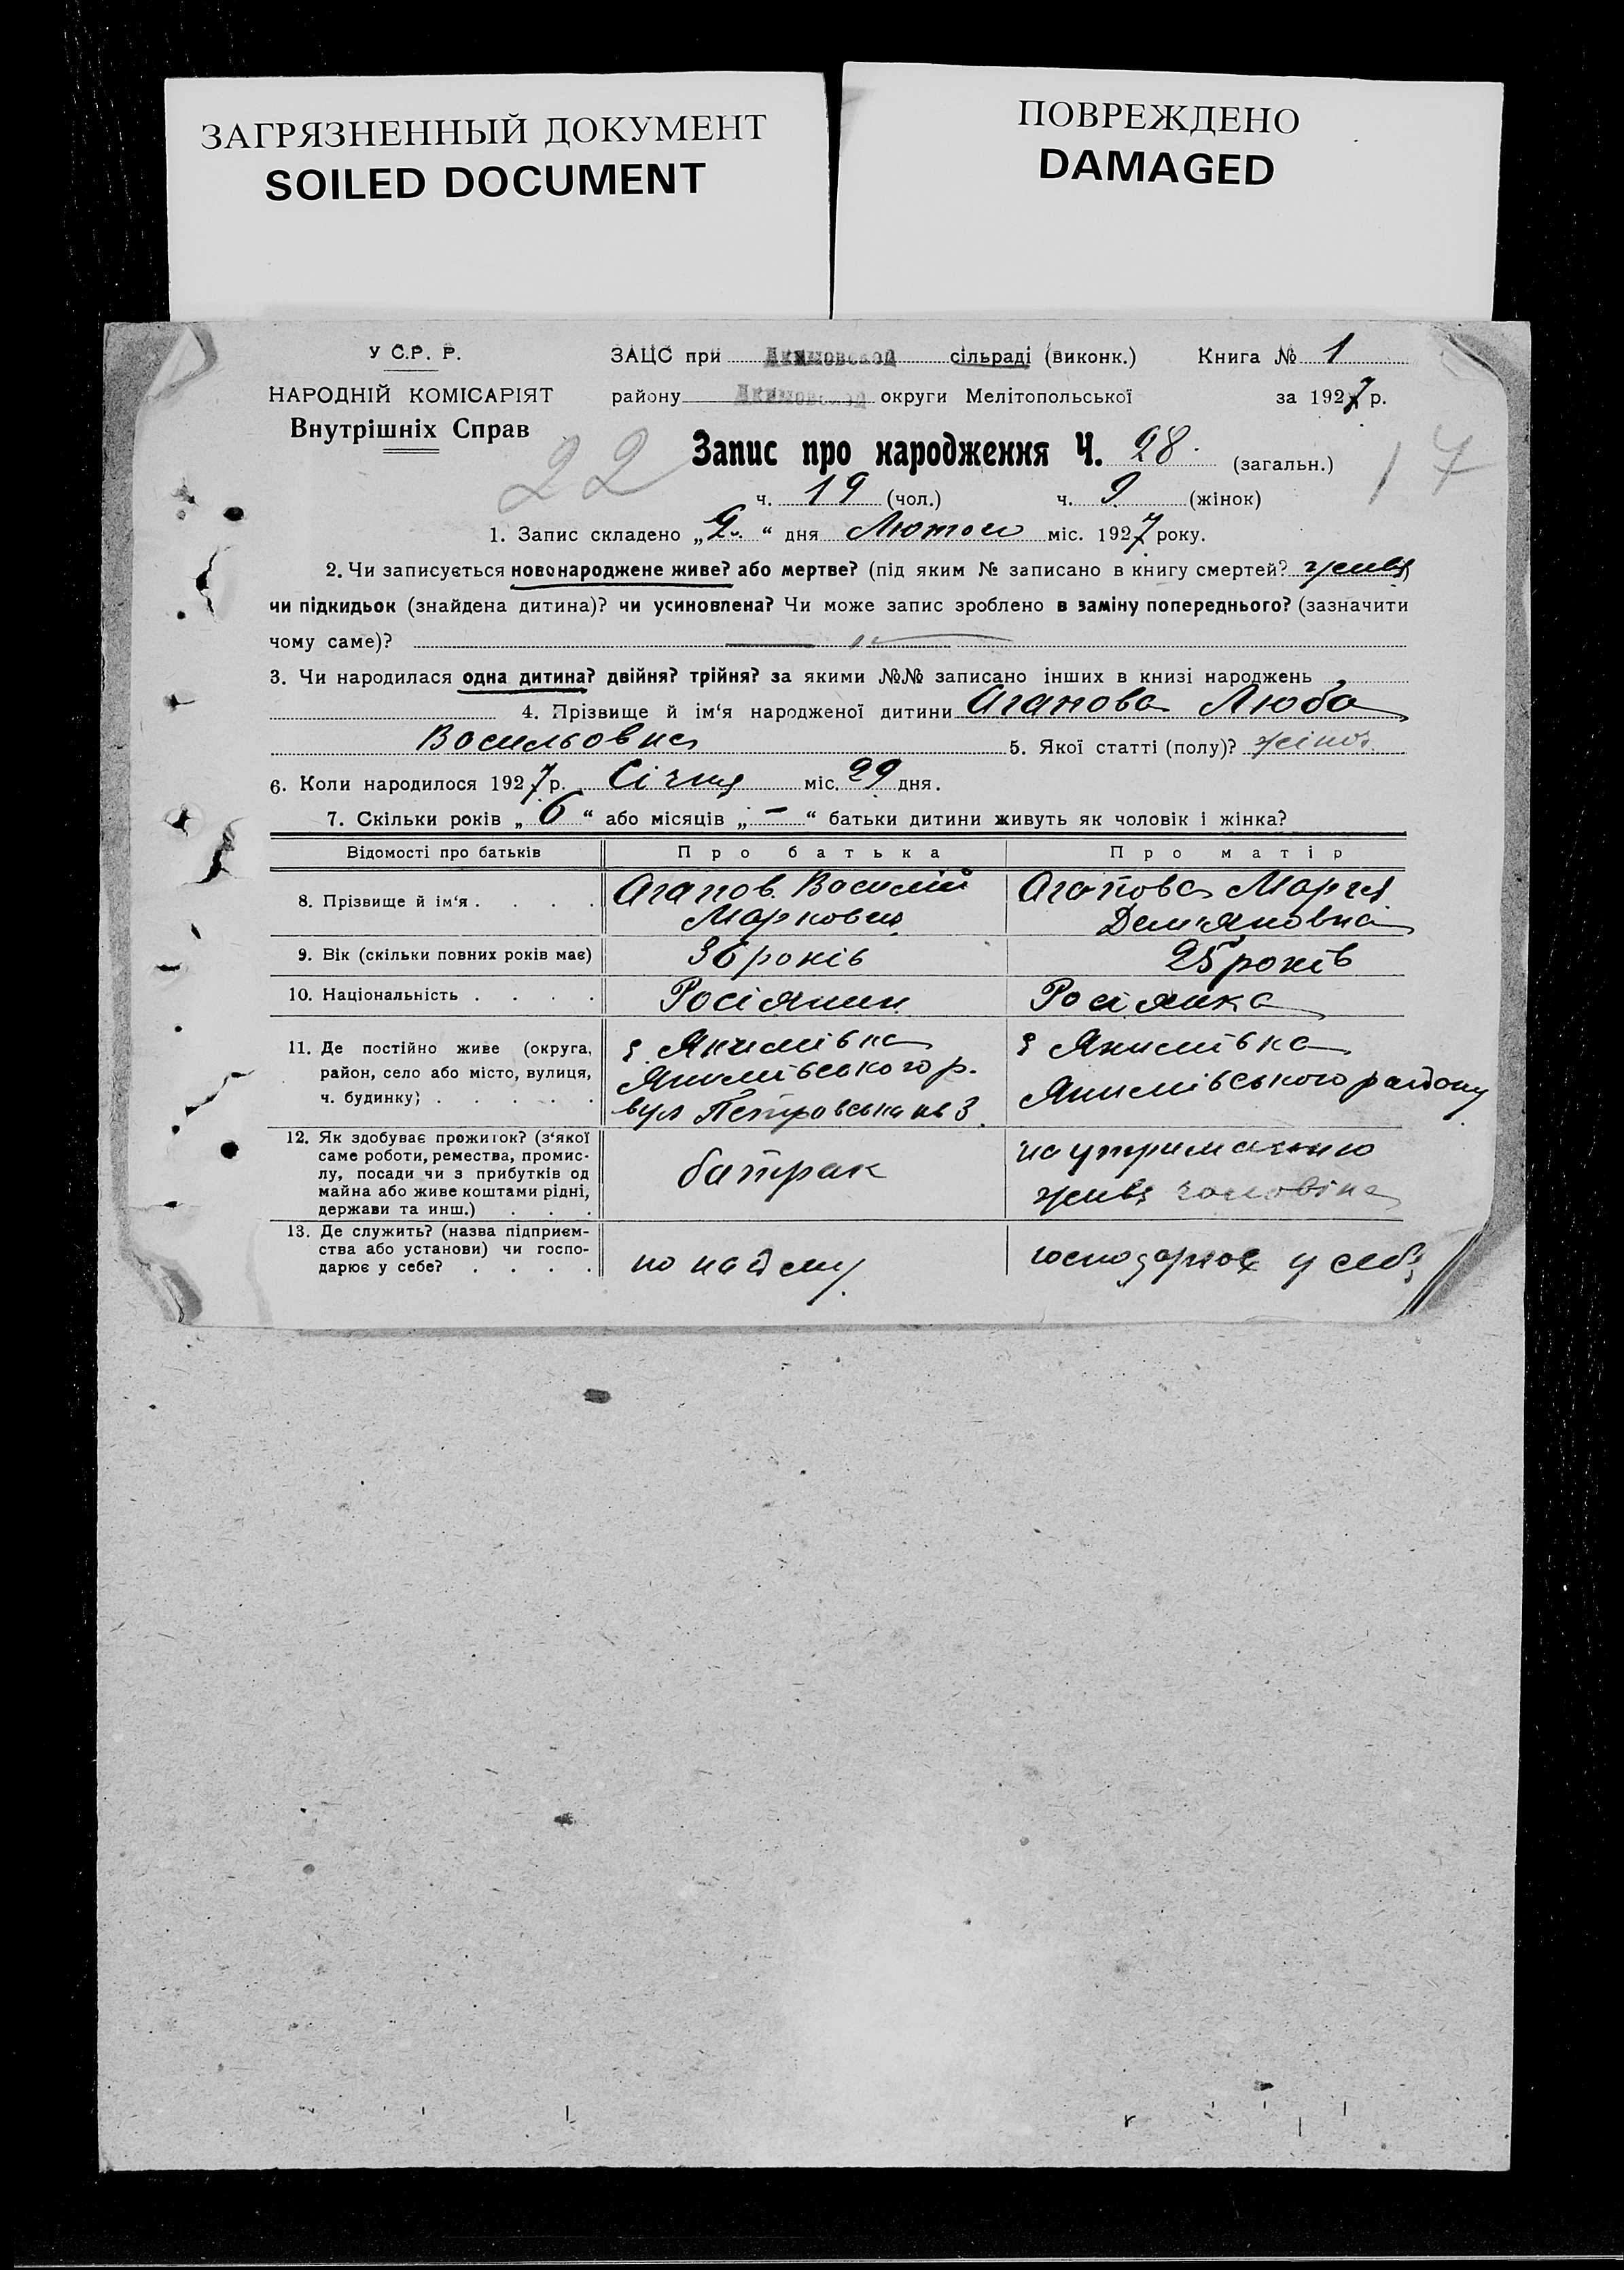 ЗАГРЯЗНЕННЫЙ ДОКУМЕНТ
SOILED DOCUMENT
ПОВРЕЖДЕНО
DAMAGED
У С.Р. Р.
НАРОДНІЙ КОМІСАРІЯТ
Внутрішніх Справ
ЗАЦС при Акимовской сільраді (виконк.) Книга № 1
району Акимовской округи Мелітопольської за 1927 р.
22
Запис про народження Ч. 28 (загальн.)
17
ч. 19 (чол.) ч. 9 (жінок)
1. Запис складено „2“ дня Лютого міс. 1927 року.
2. Чи записується новонароджене живе? або мертве? (під яким № записано в книгу смертей? живе)
чи підкидьок (знайдена дитина)? чи усиновлена? Чи може запис зроблено в заміну попереднього? (зазначити
чому саме)?
3. Чи народилася одна дитина? двійня? трійня? за якими №№ записано інших в книзі народжень
4. Прізвище й ім‘я народженої дитини Агапова Люба
Васильовна 5. Якої статті (полу)? жіноч.
6. Коли народилося 1927 р. Січня міс. 29 дня.
7. Скільки років „6“ або місяців „–“ батьки дитини живуть як чоловік і жінка?
Відомості про батьків Про батька Про матір
8. Прізвище й ім‘я . . . . Агапов Василій Маркович Агапова Марія Дем'яновна
9. Вік (скільки повних років має) 36 років 25 років
10. Національність . . . . Росіянин Росіянка
11. Де постійно живе (округа, район, село або місто, вулиця, ч. будинку) . . . . . с. Якимівка Якимівського р. вул Петровська № 3 с Якимівка Якимівського району
12. Як здобуває прожиток? (з‘якої саме роботи, ремества, промислу, посади чи з прибутків од майна або живе коштами рідні, держави та инш.) . . . батрак на утриманню живе чоловіка
13. Де служить? (назва підприємства або установи) чи господарює у себе? . . . . по найму господарює у себе